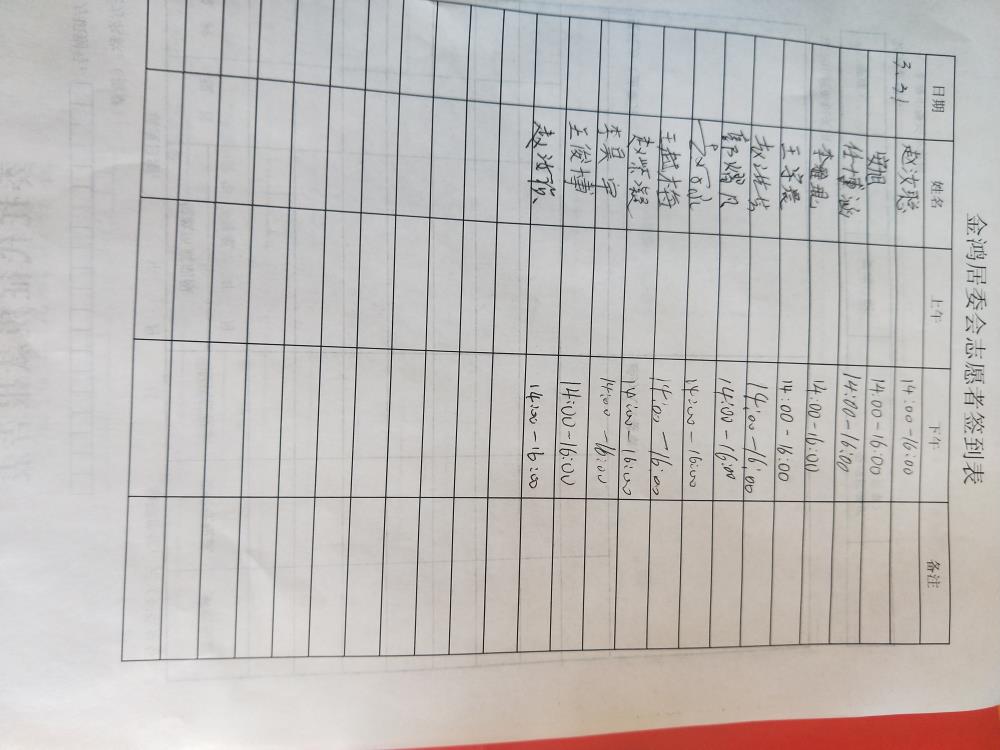 金鸿居委会志愿者签到表
日期 姓名 上午 下午 备注
3.31 赵汝聪 14:00-16:00
安旭 14:00-16:00
任博涵 14:00-16:00
李 14:00-16:00
王 晨 14:00-16:00
赵 14:00-16:00
郭熠 14:00-16:00
14:00-16:00
王 梅 14:00-16:00
赵紫凝 14:00-16:00
李昊宇 14:00-16:00
王俊博 14:00-16:00
赵 14:00-16:00